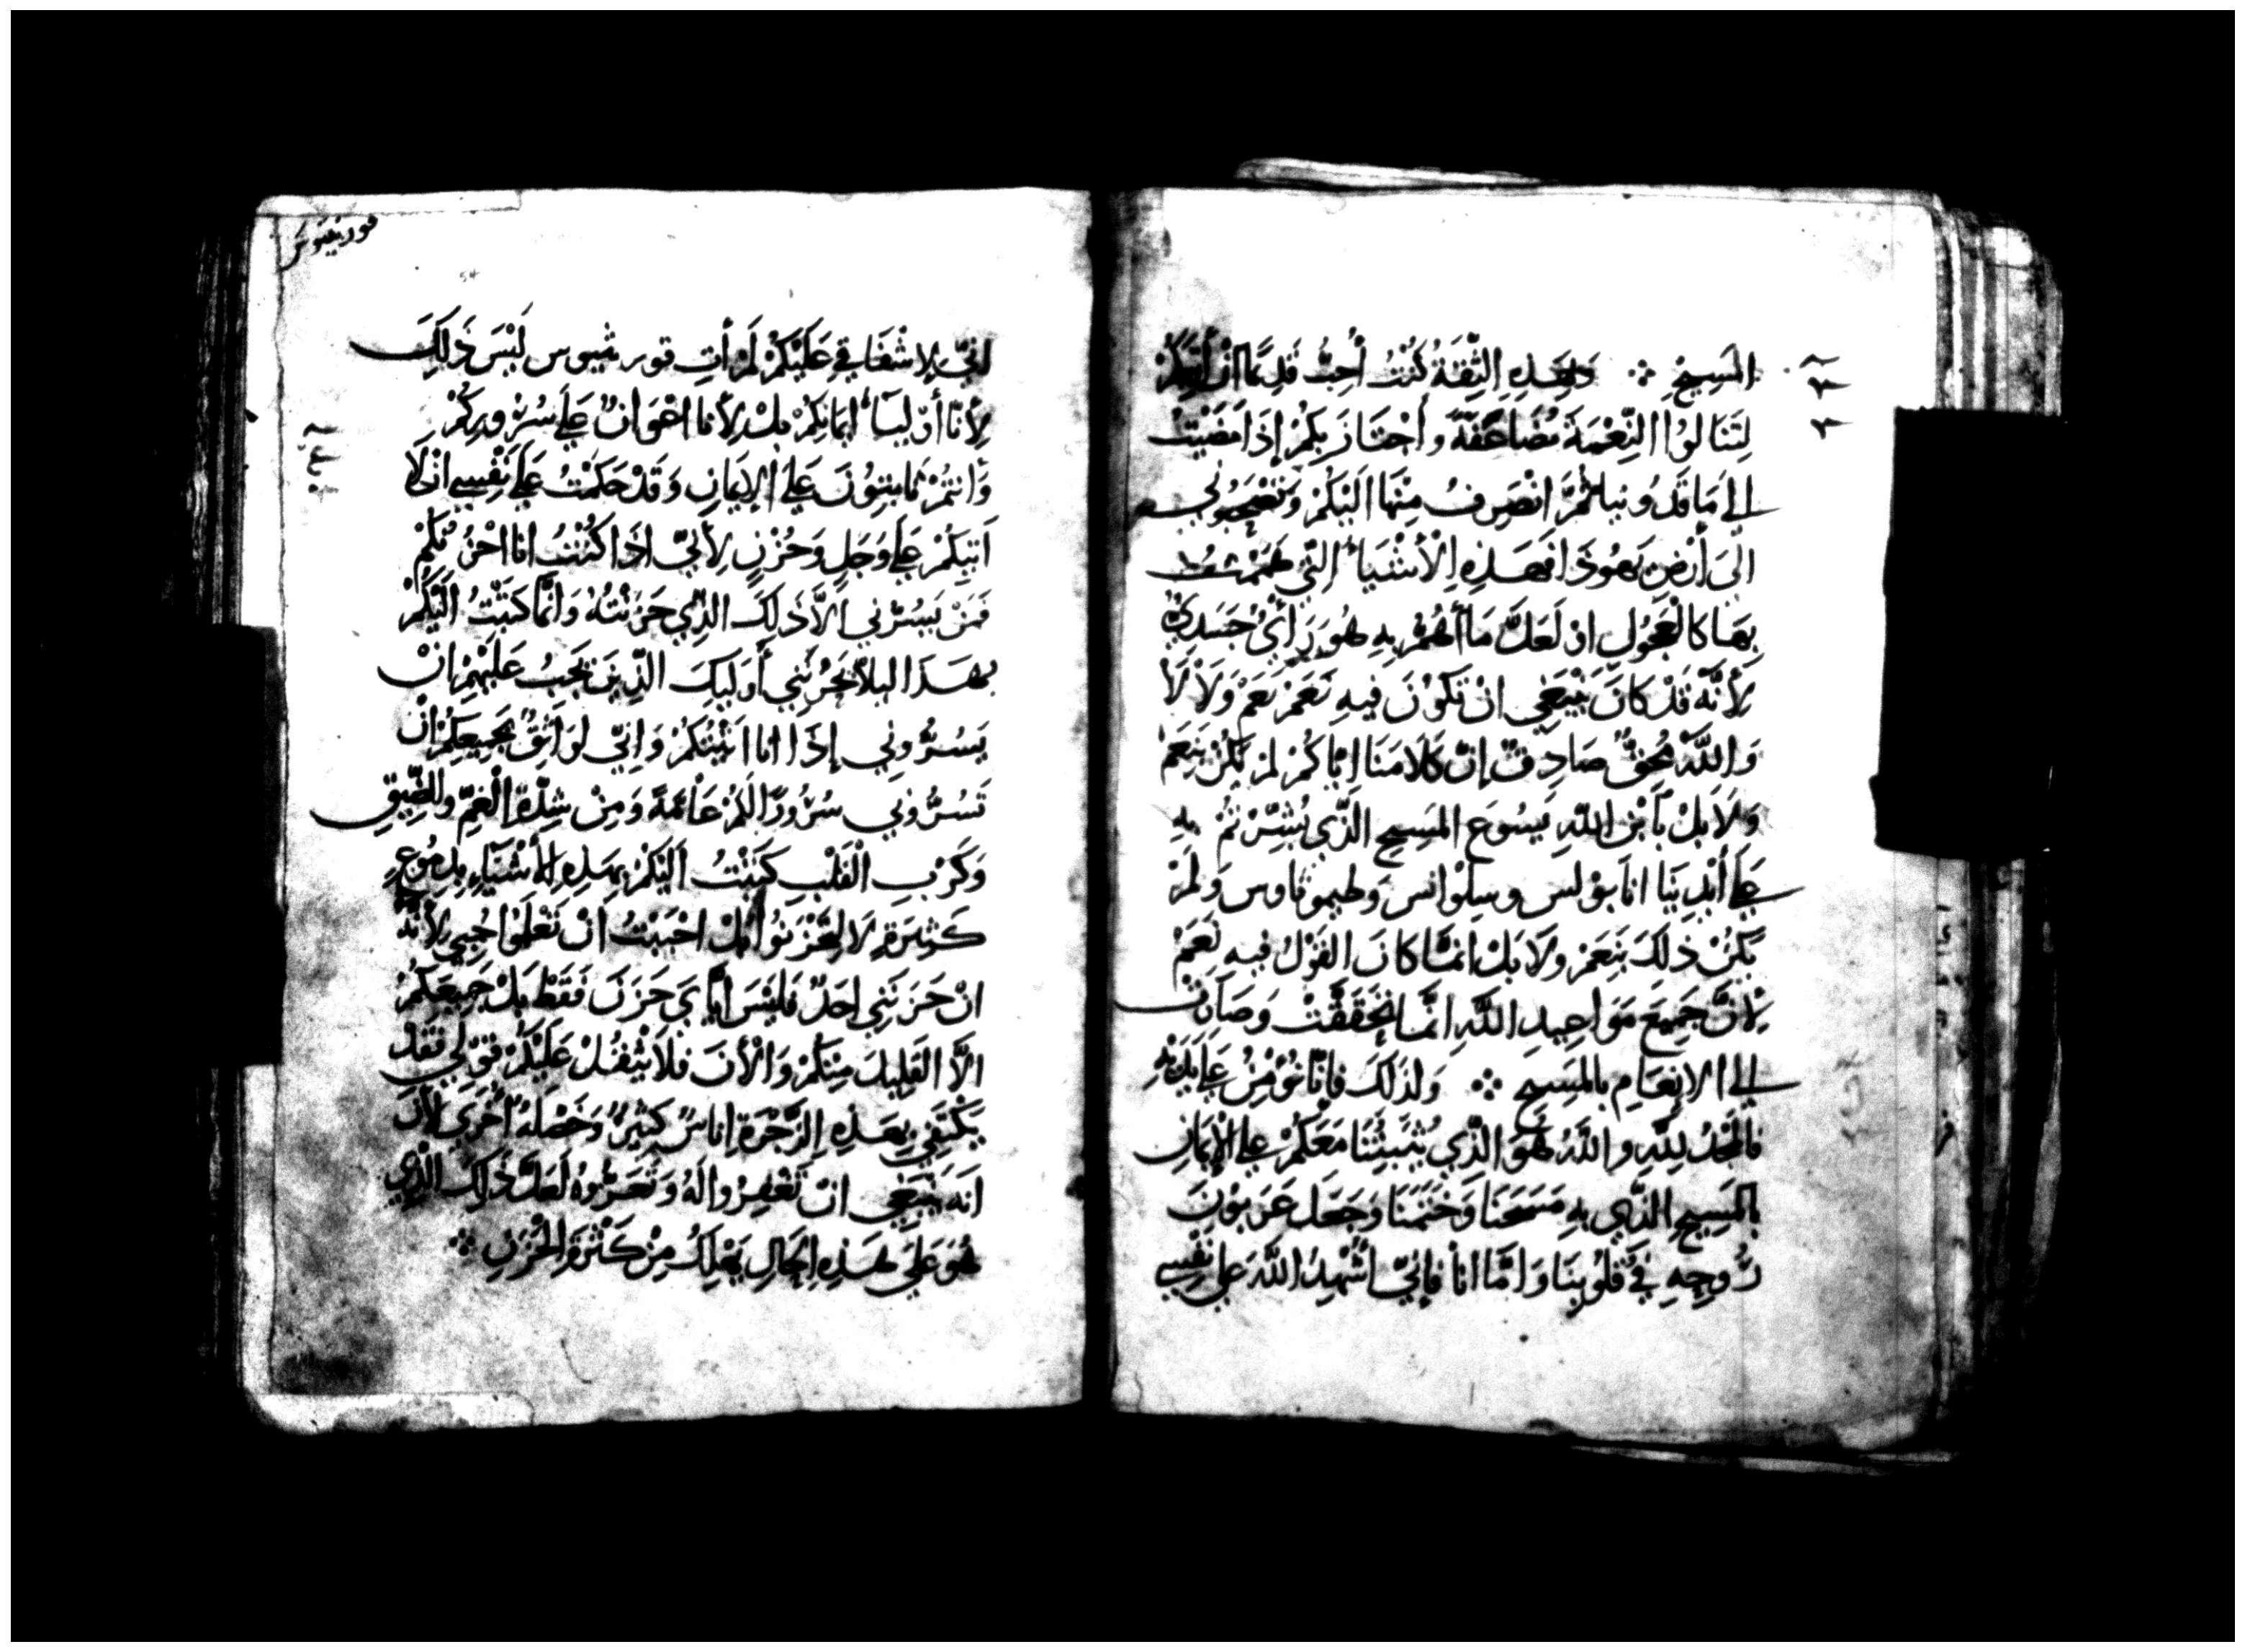 المَسِيحِ ۞ وَبِهَذِهِ الثِّقَةُ كُنْتُ أُحِبُّ قَدِيمًا انْ أَتِيَكُمْ
لِتَنَالوُا النِّعْمَةَ مُضَاعَفَةً وأجْتَازَ بِكُمْ إذَا مَضَيْتُ
إلى مَاقَدُونيا ثُمَّ انْصَرِفُ مِنْهَا الَيْكُمْ وَتَصْحَبُوني
الَى أرْضِ يَهُوذَا فهَذِهِ الْأشْيَاءُ الَّتِي هَمَمْتُ
بِهَا كالْعَجُولِ اوْ لَعَلَّ مَا أهُمُّ بِهِ هُوَ رَأيُ جَسَدِيٌّ
لِأنَّهُ قَدْ كانَ يَنْبَغِي انْ تَكُونَ فيهِ نَعَمْ نَعَمْ وَلَا لَا
وَاللَّهُ مُحِقٌّ صَادِقٌ إنّ كَلَامَنَا ايَّاكُمْ لَمْ يَكُنْ بِنَعَمْ
وَلَا بَلْ بأبْنِ اللهِ يَسُوعَ المَسِيحِ الَّذِي بُشِّرْتُمْ بِهِ
عَلى أيْدِينَا انَا بوْلسَ وسِلوَانسَ وَطيموثاوسَ وَلَمْ
يَكُنْ ذَلِكَ بِنَعَمْ ولَا بَلْ انمَّا كانَ القَوْلُ فيهِ نَعَمْ
لِأنَّ جَمِيعَ مَوَاعِيدِ اللَّهِ انَّمَا تَحَقَقَّتْ وَصَارَتْ
إلى الانعَامِ بالمَسِيحِ ۞ وَلذَلكَ فإنَّا نُؤمِنُ عَلى يَدَيْهِ
فالمَجْدُ لِلَّهِ واللَّهُ هُوَ الَّذِي يُثَبِّتُنَا مَعَكُمْ عَلى الإيمَانِ
بالمَسِيحِ الَّذِي بِهِ مَسَحَنَا وَخَتَمَنَا وَجَعَلَ عَرَبوُنَ
رُوحِهِ فِي قُلوُبِنَا وَامَّا انا فإنيّ أُشْهِدُ اللَّهَ عَلى نَفْسِي
قورنثيوس
انيّ لإشْفَاقِي عَلَيْكُمْ لَمْ أتِ قورنثيوس لَيْسَ ذَلِكَ
لِأنَّا أوْلِيَآءُ ايمَانِكُمْ بَلْ لِأنَّا اعْوَانٌ عَلَى سُرُورِكُمْ
وَانتُمْ ثَابتِوُنَ عَلى الإيمَانِ وَقَدْ حَكَمْتُ عَلَى نَفْسِي انْ لَا
آتِيَكُمْ عَلَى وَجَلٍ وَحُزْنٍ لِأنيّ اذَا كُنْتُ انَا احْزُنُكُمْ
فَمَنْ يَسُرُّني الَّا ذَلِكَ الَّذِي حَزَنْتُهُ وَانَّمَا كَتَبْتُ الَيْكُمْ
بهَذَا لئلَّا يَحْزُنَنِي أوليِكَ الَّذِينَ يَجِبُ عَلَيْهِمْ انْ
يَسُرُّونِي إذَا انا اتَيْتُكُمْ وَانيّ لوَاثِقٌ بِجَمِيعِكُمْ انْ
تَسُرُّونِي سُرُورًا لَكُمْ عَامَّةً وَمِنْ شِدَّةِ الْغَمِّ والضِّيقِ
وَكَرْبِ الْقَلْبِ كَتَبْتُ الَيْكُمْ بِهَذِهِ الأشْيَاءِ بِدمُوعٍ
كَثِيرَةٍ لَا لِتَحْزَنوُا بَلْ احْبَبْتُ انْ تَعْلَمُوا حُبِّي لِأنَّهُ
انْ حَزَنَنِي احَدٌ فَلَيْسَ ايَّايَ حَزَنَ فَقَطْ بَلْ جَمِيعَكُمْ
الَّا القَلِيلَ مِنْكُمْ وَالْأنَ فَلا يَثْقُلْ عَلَيْكُمْ قَوْلِي فَقَدْ
يَكْتَفِي بِهَذِهِ الزَّجْرَةِ انَاسٌ كَثِيرٌ وَخَصْلَةٌ أُخْرَى لِأنَّ
انَهُ يَنْبَغِي انْ تَغْفِرُوا لَهُ وَتُعَزُّوهُ لَعَلَّ ذَلِكَ الَّذِي
هُوَ عَلَى هَذِهِ الحَالِ يَهْلِكُ مِنْ كَثْرَةِ الْحُزْنِ ۞